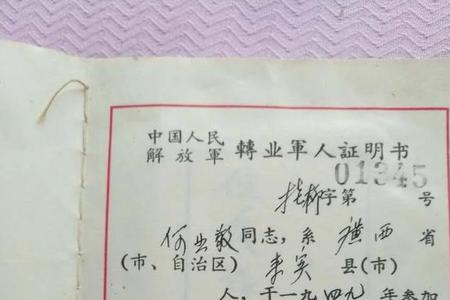 中国人民
解放軍 轉业軍人証明书
01345
字第 号
何 敬同志，系 广西 省
(市、自治区) 来宾 县(市)
人，于一九四九年参加